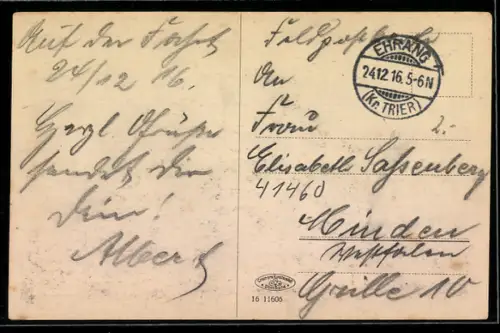 Auf der Fahrt
24/12 16.
Herzl. Grüße
sendet dir
Dein!
Albert
Feldpostkarte
EHRANG
24.12.16. 5-6N
(Kr. TRIER)
An
Frau
2.-
Elisabeth Sassenberg
41460
Minden
Westfalen
Grille 10
16 11606